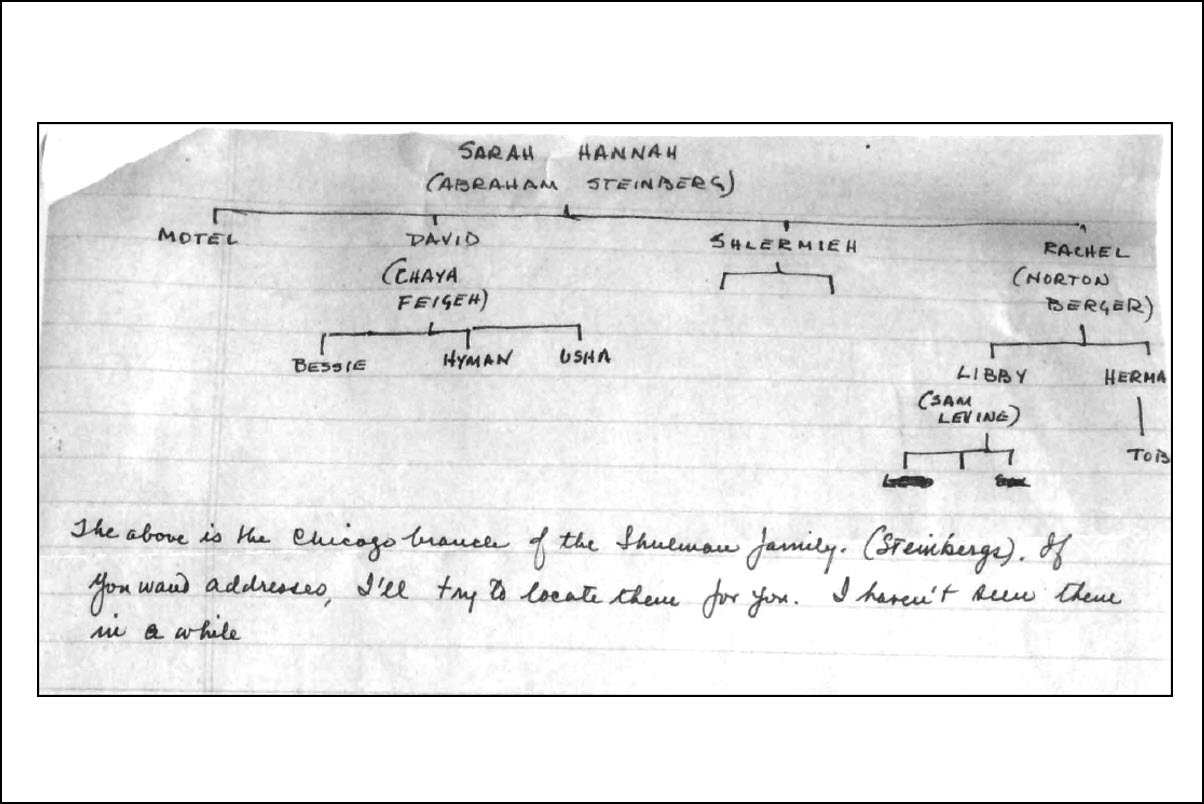 SARAH HANNAH
(ABRAHAM STEINBERG)
MOTEL DAVID SHLERMIEH RACHEL
(CHAYA (NORTON
FEIGEH) BERGER)
BESSIE HYMAN USHA LIBBY HERMA
(SAM
LEVINE)
TOB
The above is the Chicago branch of the Shulman family. (Steinbergs). If
you want addresses, I'll try to locate them for you. I haven't seen them
in a while